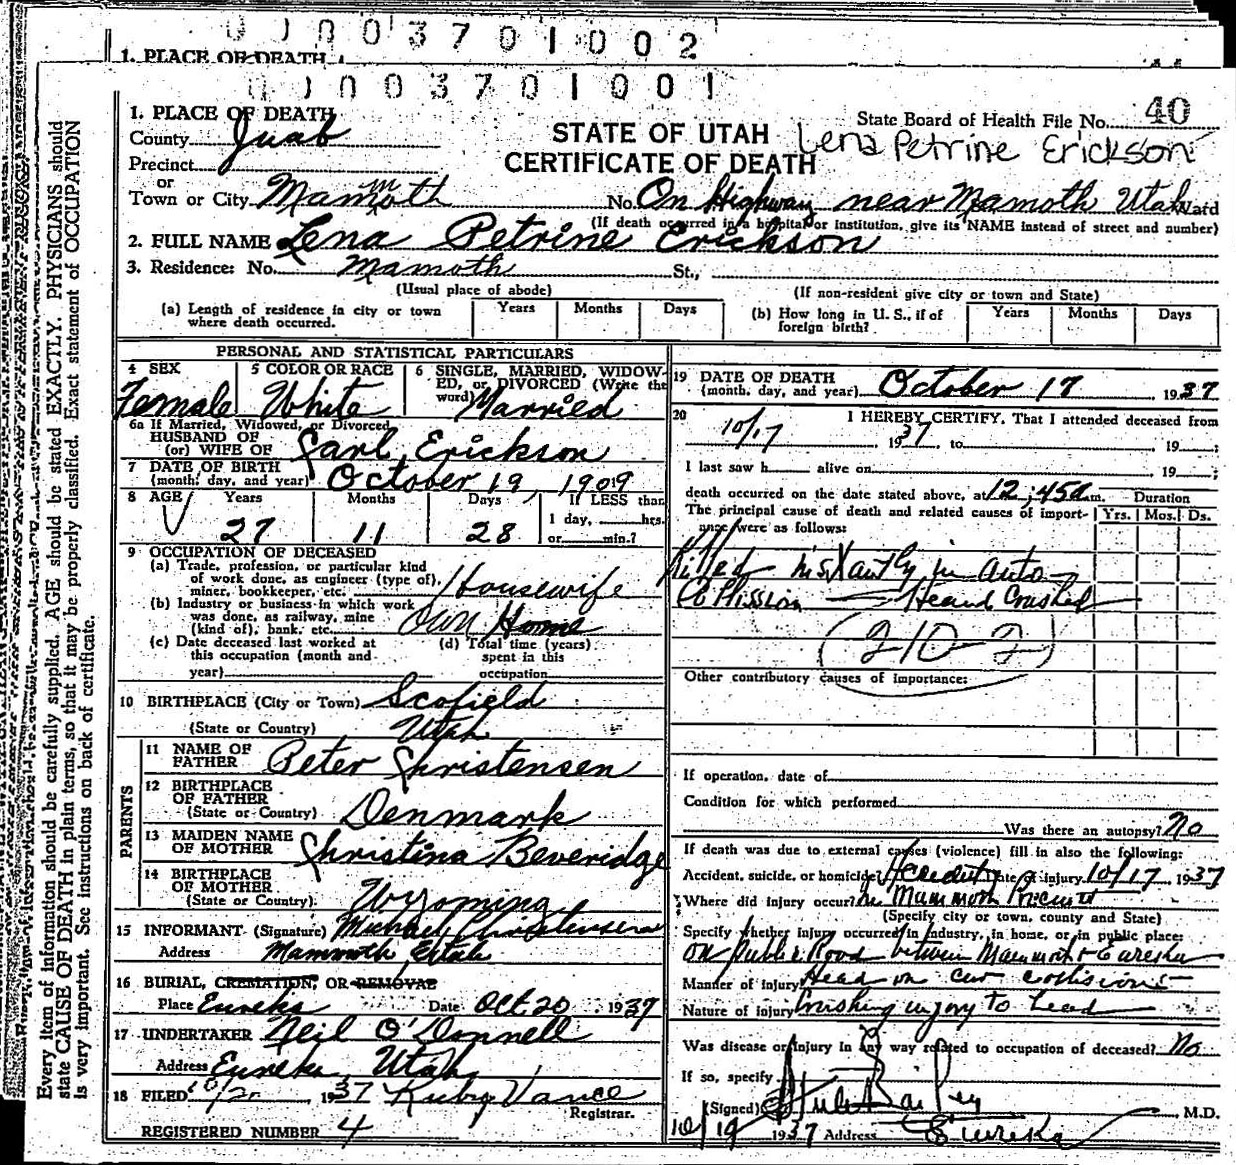 0 0 0 0 3 7 0 1 0 0 2
1. PLACE OF DEATH
0 0 0 3 7 0 1 0 0 1
1. PLACE OF DEATH
County Juab
Precinct
or
Town or City Mammoth
STATE OF UTAH
CERTIFICATE OF DEATH
State Board of Health File No. 40
Lena Petrine Erickson
No. On Highway near Mamoth Utah Ward
(If death occurred in a hospital or institution, give its NAME instead of street and number)
2. FULL NAME Lena Petrine Erickson
3. Residence: No. Mamoth St.,
(Usual place of abode)
(If non-resident give city or town and State)
(a) Length of residence in city or town where death occurred.
Years Months Days
(b) How long in U. S., if of foreign birth?
Years Months Days
PERSONAL AND STATISTICAL PARTICULARS
4 SEX
Female
5 COLOR OR RACE
White
6 SINGLE, MARRIED, WIDOW-
ED, or DIVORCED (Write the
word) Married
6a If Married, Widowed, or Divorced
HUSBAND OF
(or) WIFE OF Carl Erickson
7 DATE OF BIRTH
(month, day, and year) October 19, 1909
8 AGE Years Months Days If LESS than
27 11 28
1 day, hrs.
or min.?
9 OCCUPATION OF DECEASED
(a) Trade, profession, or particular kind
of work done, as engineer (type of),
miner, bookkeeper, etc. Housewife
(b) Industry or business in which work
was done, as railway, mine
(kind of), bank, etc. Own Home
(c) Date deceased last worked at
this occupation (month and
year)
(d) Total time (years)
spent in this
occupation
10 BIRTHPLACE (City or Town) Scofield
(State or Country) Utah
PARENTS
11 NAME OF
FATHER Peter Christensen
12 BIRTHPLACE
OF FATHER
(State or Country) Denmark
13 MAIDEN NAME
OF MOTHER Christina Beveridge
14 BIRTHPLACE
OF MOTHER
(State or Country) Wyoming
15 INFORMANT (Signature) Michael Christensen
Address Mammoth Utah
16 BURIAL, CREMATION, OR REMOVAL
Place Eureka Date Oct 20 1937
17 UNDERTAKER Neil O'Donnell
Address Eureka, Utah
18 FILED 10/20, 1937 Ruby Vance
Registrar.
REGISTERED NUMBER 4
19 DATE OF DEATH
(month, day, and year) October 17, 1937
20 I HEREBY CERTIFY, That I attended deceased from
10/17, 1937, to 19
I last saw h alive on 19
death occurred on the date stated above, at 12:45a m.
Duration
The principal cause of death and related causes of import-
ance were as follows:
Yrs. Mos. Ds.
Killed instantly in auto
Collission — Head Crushed
(210-2)
Other contributory causes of importance:
If operation, date of
Condition for which performed
Was there an autopsy? No
If death was due to external causes (violence) fill in also the following:
Accident, suicide, or homicide? Accident Date of injury 10/17 1937
Where did injury occur? In Mammoth Precinct
(Specify city or town, county and State)
Specify whether injury occurred in industry, in home, or in public place:
On public Road between Mammoth & Eureka
Manner of injury Head on car collisions
Nature of injury Crushing injury to head
Was disease or injury in any way related to occupation of deceased? No
If so, specify
(Signed) Bailey, M.D.
10/19 1937 Address Eureka
Every item of information should be carefully supplied. AGE should be stated EXACTLY. PHYSICIANS should
state CAUSE OF DEATH in plain terms, so that it may be properly classified. Exact statement of OCCUPATION
is very important. See instructions on back of certificate.